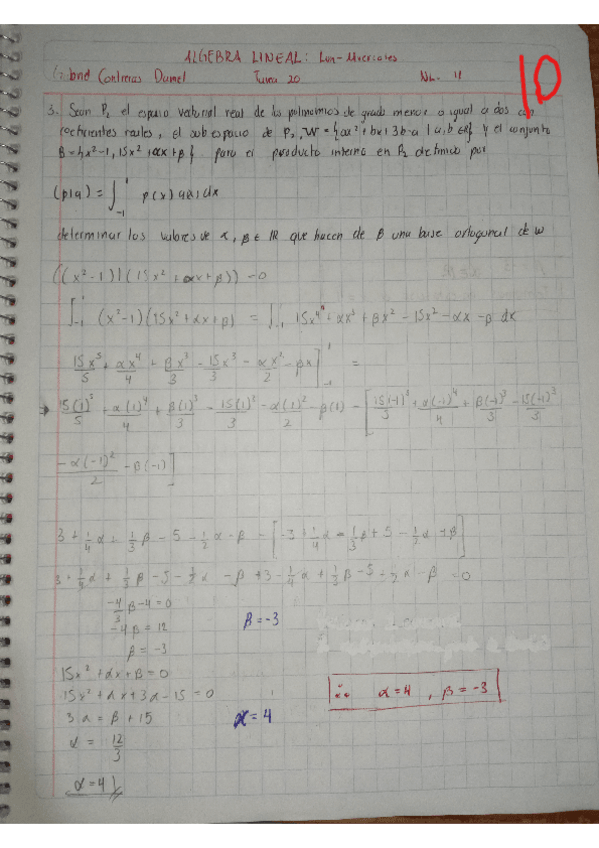 ALGEBRA LINEAL: Lun-Miercoles
Contreras Daniel Tarea 20 NL. 11
10
3. Sean P₂ el espacio vectorial real de los polinomios de grado menor o igual a dos con
coeficientes reales, el subespacio de P₂, W = {ax² + bx + 3b-a | a, b ∈ R} y el conjunto
B = {x²-1, 15x² + αx + β} para el producto interno en P₂ definido por
(p|q) = ∫₋₁¹ p(x) q(x) dx
determinar los valores de α, β ∈ R que hacen de B una base ortogonal de W
((x²-1)|(15x² + αx + β)) = 0
∫₋₁¹ (x²-1)(15x² + αx + β) = ∫₋₁¹ 15x⁴ + αx³ + βx² - 15x² - αx - β dx
15x⁵/5 + αx⁴/4 + βx³/3 - 15x³/3 - αx²/2 - βx]₋₁¹ =
→ 15(1)⁵/5 + α(1)⁴/4 + β(1)³/3 - 15(1)²/3 - α(1)²/2 - β(1) - [15(-1)⁵/5 + α(-1)⁴/4 + β(-1)³/3 - 15(-1)³/3
- α(-1)²/2 - β(-1)]
3 + 1/4 α + 1/3 β - 5 - 1/2 α - β - [-3 + 1/4 α - 1/3 β + 5 - 1/2 α + β]
3 + 1/4 α + 1/3 β - 5 - 1/2 α - β + 3 - 1/4 α + 1/3 β - 5 - 1/2 α - β = 0
-4/3 β - 4 = 0
-4β = 12 β = -3
β = -3
15x² + αx + β = 0
15x² + αx + 3α - 15 = 0 ∴ α = 4 , β = -3
3α = β + 15 α = 4
α = 12/3
α = 4